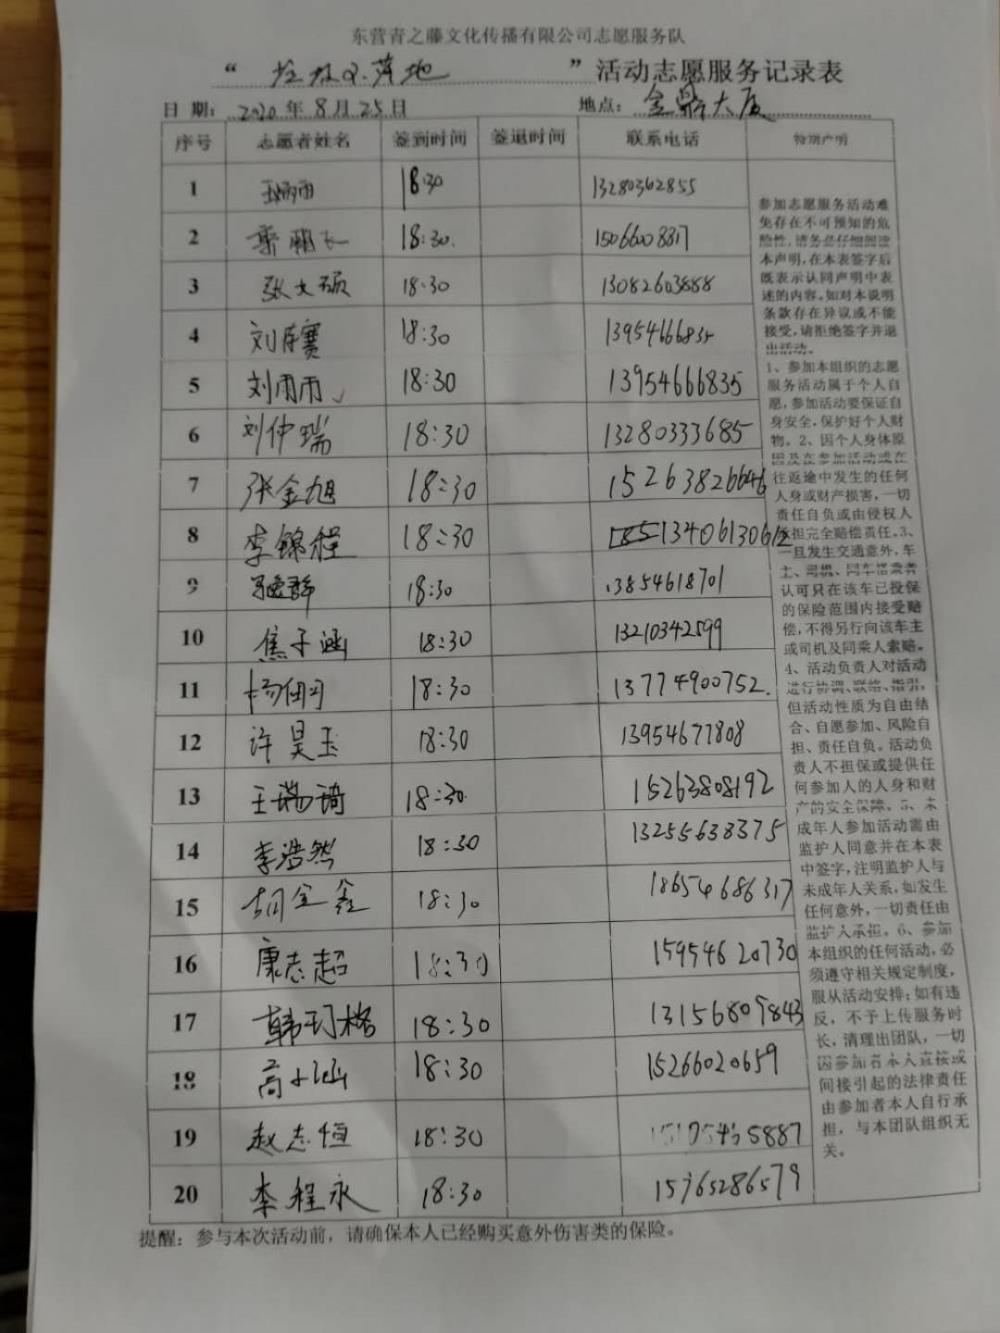 东营青之藤文化传播有限公司志愿服务队
“垃圾不落地”活动志愿服务记录表
日期：2020年8月25日 地点：金鼎大厦
序号 志愿者姓名 签到时间 签退时间 联系电话 特别声明
1 18:30 13280362855
2 18:30. 15066008317
3 张文硕 18:30 13082603888
4 刘彦赛 18:30 13954666835
5 刘雨雨 18:30 13954666835
6 刘仲瑞 18:30 13280333685
7 张金旭 18:30 15263826646
8 李锦程 18:30 13406130612
9 18:30 13854618701
10 焦子涵 18:30 13210342599
11 18:30 13774900752.
12 许昊玉 18:30 13954677808
13 王瑞琦 18:30 15263808192
14 李浩然 18:30 13255638375
15 胡金鑫 18:30 18654686317
16 康志超 18:30 15954620730
17 韩玎格 18:30 13156809843
18 高小涵 18:30 15266020659
19 赵志恒 18:30
20 李程永 18:30 15765286579
参加志愿服务活动难
免存在不可预知的危
险性，请务必仔细阅读
本声明，在本表签字后
既表示认同声明中表
述的内容。如对本说明
条款存在异议或不能
接受，请拒绝签字并退
出活动。
1、参加本组织的志愿
服务活动属于个人自
愿，参加活动要保证自
身安全，保护好个人财
物。2、因个人身体原
因及在参加活动或在
往返途中发生的任何
人身或财产损害，一切
责任自负或由侵权人
承担完全赔偿责任。3、
一旦发生交通意外，车
主、司机、同车搭乘者
认可只在该车已投保
的保险范围内接受赔
偿，不得另行向该车主
或司机及同乘人索赔。
4、活动负责人对活动
进行协调、联络、指引，
但活动性质为自由结
合、自愿参加、风险自
担、责任自负。活动负
责人不担保或提供任
何参加人的人身和财
产的安全保障。5、未
成年人参加活动需由
监护人同意并在本表
中签字，注明监护人与
未成年人关系，如发生
任何意外，一切责任由
监护人承担。6、参加
本组织的任何活动，必
须遵守相关规定制度，
服从活动安排；如有违
反，不予上传服务时
长，清理出团队，一切
因参加者本人直接或
间接引起的法律责任
由参加者本人自行承
担，与本团队组织无
关。
提醒：参与本次活动前，请确保本人已经购买意外伤害类的保险。